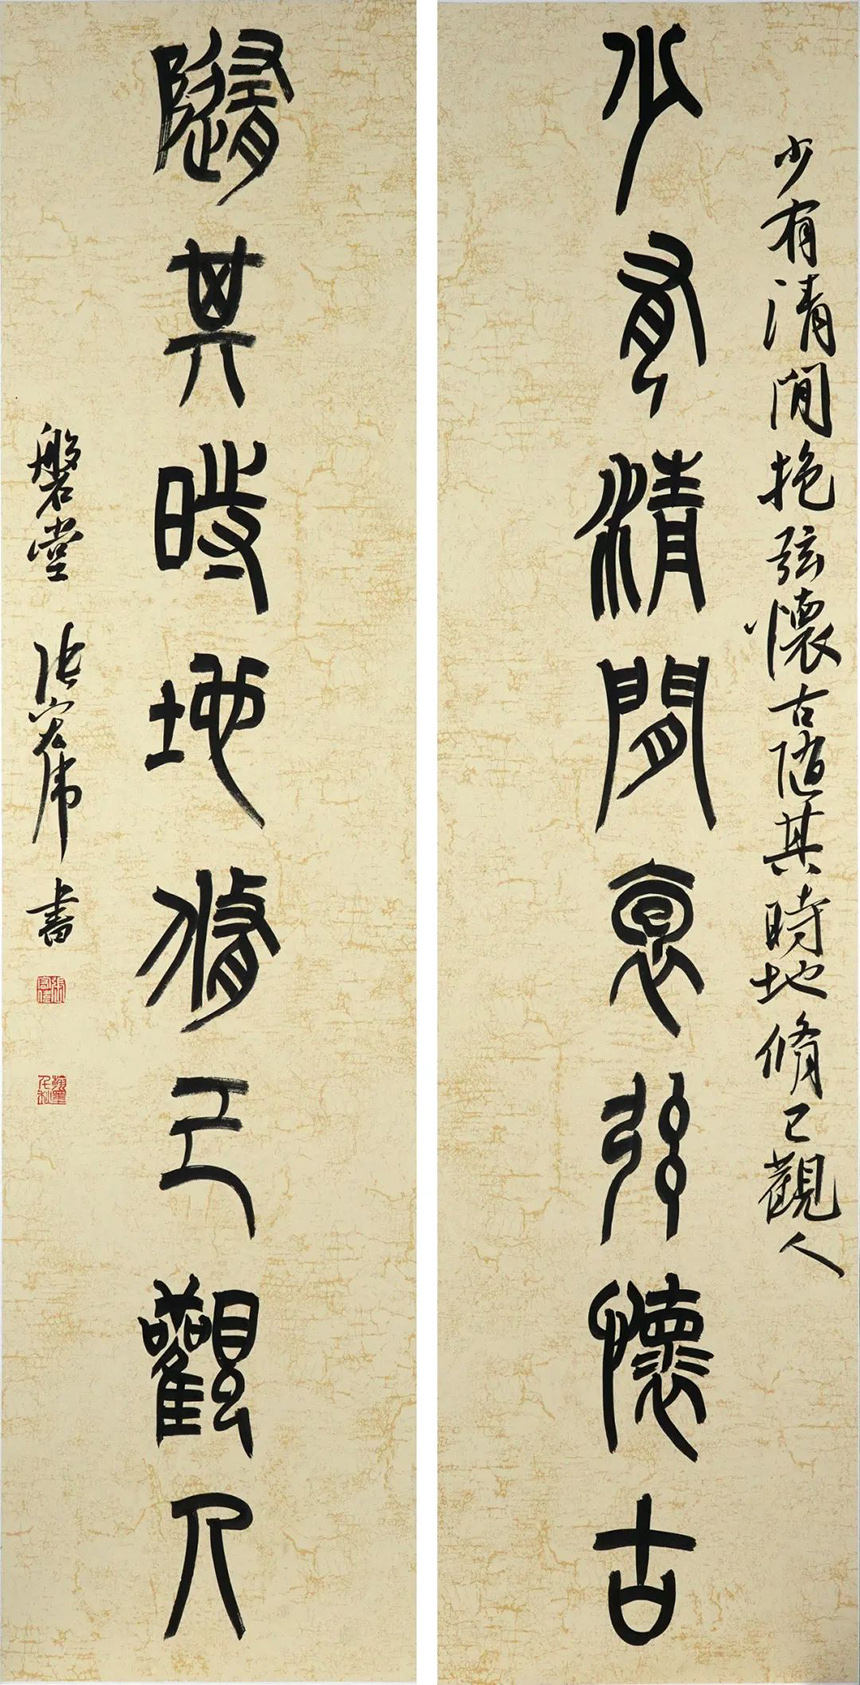 少有清閒抱弦懷古隨其時地脩己觀人
少有清閒袌弦懷古
隨其時地脩己觀人
磐堂 張宏偉 書